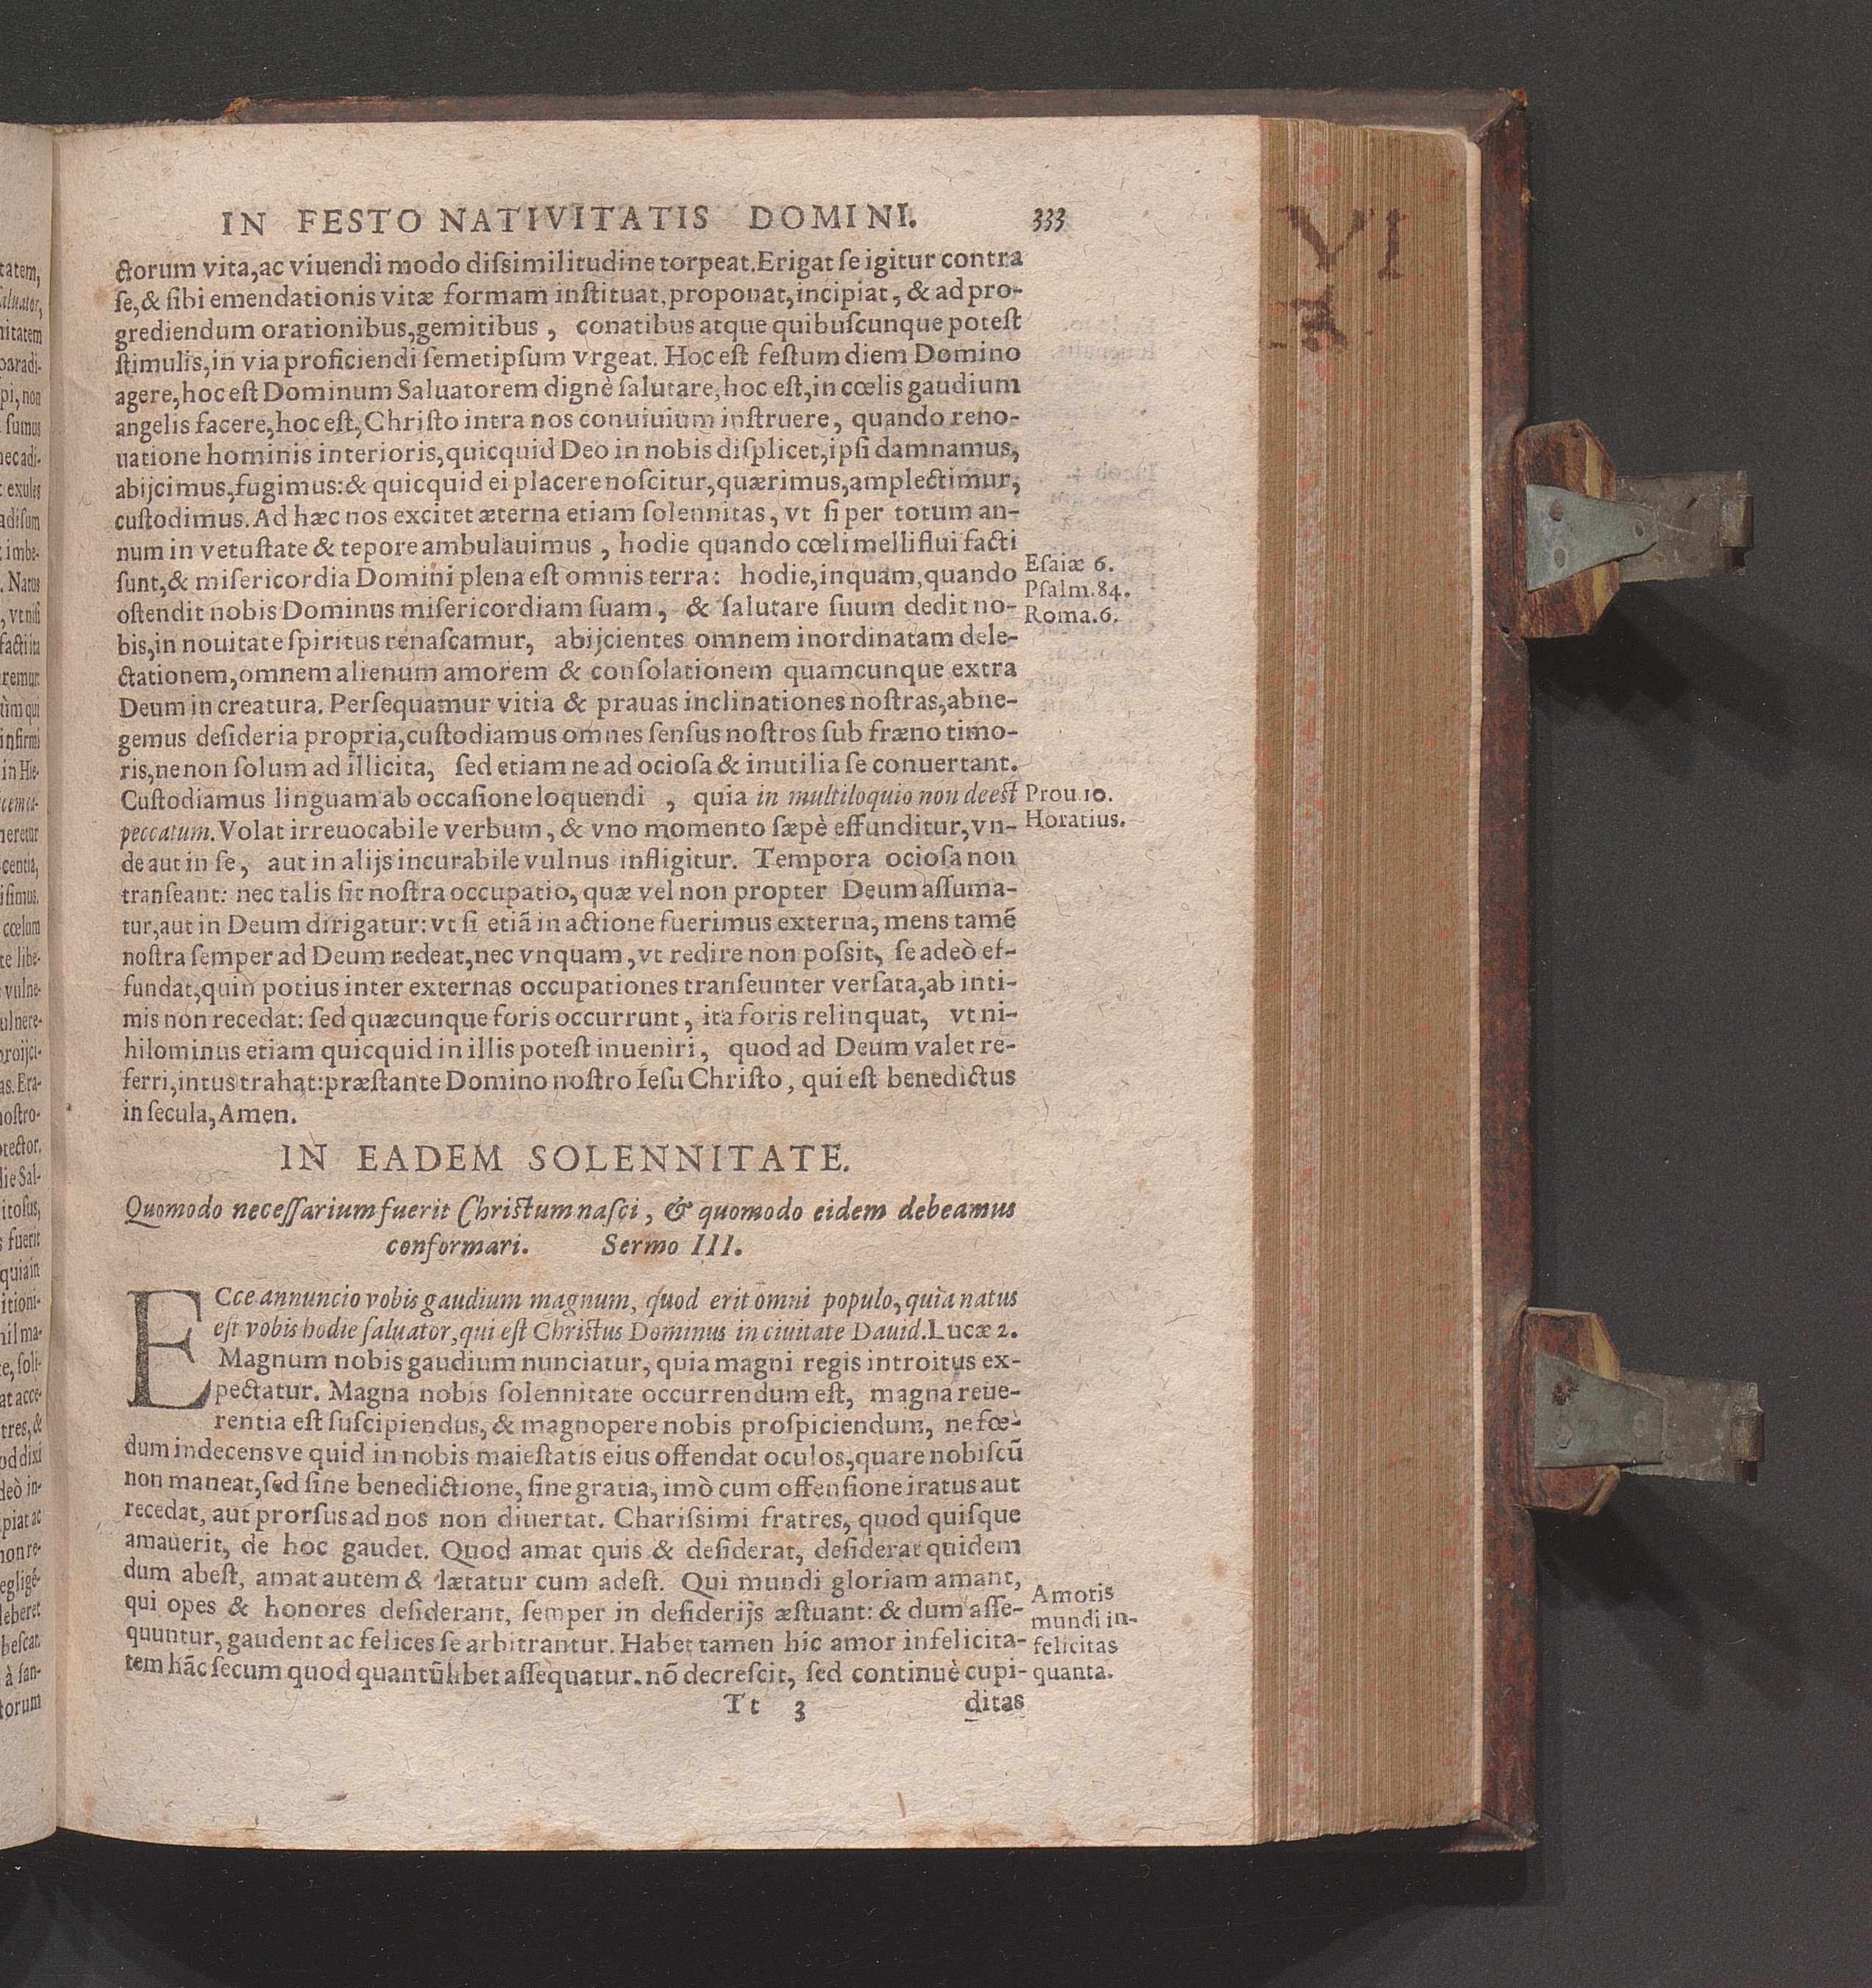 IN FESTO NATIVITATIS DOMINI. 333
ctorum vita, ac viuendi modo dißimilitudine torpeat. Erigat ſe igitur contra
ſe, & ſibi emendationis vitæ formam inſtituat, proponat, incipiat, & ad pro-
grediendum orationibus, gemitibus, conatibus atque quibuſcunque poteſt
ſtimulis, in via proficiendi ſemetipſum vrgeat. Hoc eſt feſtum diem Domino
agere, hoc eſt Dominum Saluatorem dignè ſalutare, hoc eſt, in cœlis gaudium
angelis facere, hoc eſt, Chriſto intra nos conuiuium inſtruere, quando reno-
uatione hominis interioris, quicquid Deo in nobis diſplicet, ipſi damnamus,
abijcimus, fugimus: & quicquid ei placere noſcitur, quærimus, amplectimur,
cuſtodimus. Ad hæc nos excitet æterna etiam ſolennitas, vt ſi per totum an-
num in vetuſtate & tepore ambulauimus, hodie quando cœli melliflui facti
ſunt, & miſericordia Domini plena eſt omnis terra: hodie, inquam, quando
oſtendit nobis Dominus miſericordiam ſuam, & ſalutare ſuum dedit no-
bis, in nouitate ſpiritus renaſcamur, abijcientes omnem inordinatam dele-
ctationem, omnem alienum amorem & conſolationem quamcunque extra
Deum in creatura. Perſequamur vitia & prauas inclinationes noſtras, abne-
gemus deſideria propria, cuſtodiamus omnes ſenſus noſtros ſub fræno timo-
ris, ne non ſolum ad illicita, ſed etiam ne ad ocioſa & inutilia ſe conuertant.
Cuſtodiamus linguam ab occaſione loquendi, quia in multiloquio non deeſt
peccatum. Volat irreuocabile verbum, & vno momento ſæpè effunditur, vn-
de aut in ſe, aut in alijs incurabile vulnus infligitur. Tempora ocioſa non
tranſeant: nec talis ſit noſtra occupatio, quæ vel non propter Deum aſſuma-
tur, aut in Deum dirigatur: vt ſi etiã in actione fuerimus externa, mens tamẽ
noſtra ſemper ad Deum redeat, nec vnquam, vt redire non poſsit, ſe adeò ef-
fundat, quin potius inter externas occupationes tranſeunter verſata, ab inti-
mis non recedat: ſed quæcunque foris occurrunt, ita foris relinquat, vt ni-
hilominus etiam quicquid in illis poteſt inueniri, quod ad Deum valet re-
ferri, intus trahat: præſtante Domino noſtro Ieſu Chriſto, qui eſt benedictus
in ſecula, Amen.
Eſaiæ 6.
Pſalm. 84.
Roma. 6.
Prou. 10.
Horatius.
IN EADEM SOLENNITATE.
Quomodo neceſſarium fuerit Chriſtum naſci, & quomodo eidem debeamus
conformari. Sermo III.
ECce annuncio vobis gaudium magnum, quod erit omni populo, quia natus
eſt vobis hodie ſaluator, qui eſt Chriſtus Dominus in ciuitate Dauid. Lucæ 2.
Magnum nobis gaudium nunciatur, quia magni regis introitus ex-
pectatur. Magna nobis ſolennitate occurrendum eſt, magna reue-
rentia eſt ſuſcipiendus, & magnopere nobis proſpiciendum, ne fœ-
dum indecensve quid in nobis maieſtatis eius offendat oculos, quare nobiſcũ
non maneat, ſed ſine benedictione, ſine gratia, imò cum offenſione iratus aut
recedat, aut prorſus ad nos non diuertat. Charißimi fratres, quod quiſque
amauerit, de hoc gaudet. Quod amat quis & deſiderat, deſiderat quidem
dum abeſt, amat autem & lætatur cum adeſt. Qui mundi gloriam amant,
qui opes & honores deſiderant, ſemper in deſiderijs æſtuant: & dum aſſe-
quuntur, gaudent ac felices ſe arbitrantur. Habet tamen hic amor infelicita-
tem hãc ſecum quod quantũlibet aſſequatur, nõ decreſcit, ſed continuè cupi-
Amoris
mundi in-
felicitas
quanta.
Tt 3 ditas